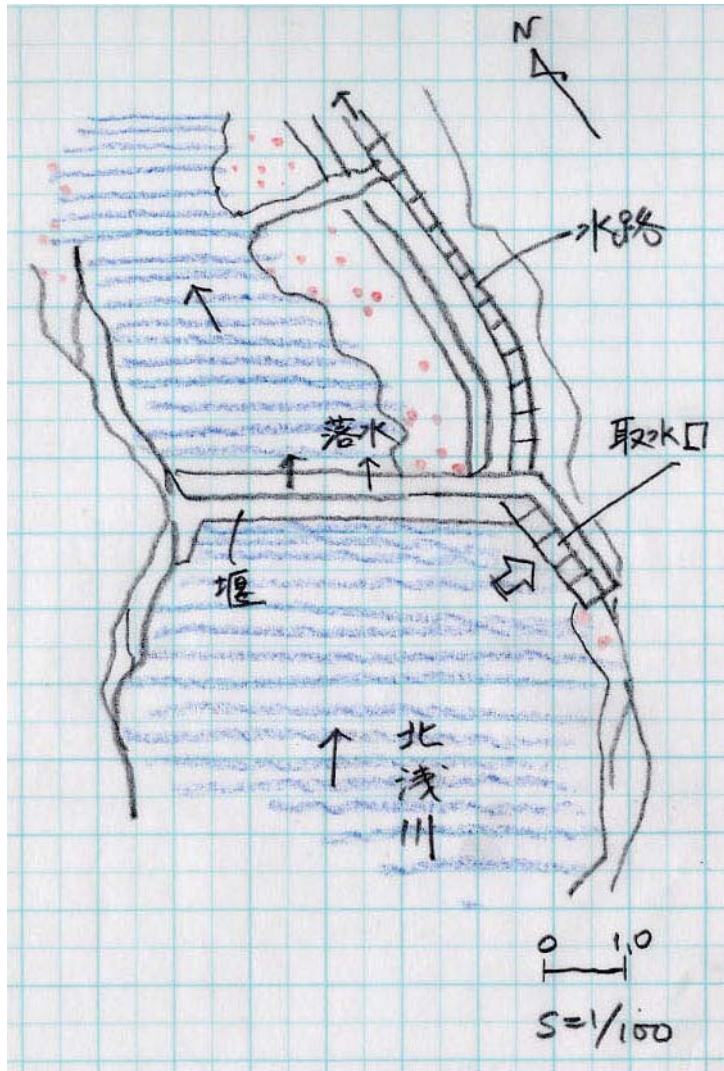 N
水路
取水口
落水
堰
北浅川
0 1.0
S=1/100